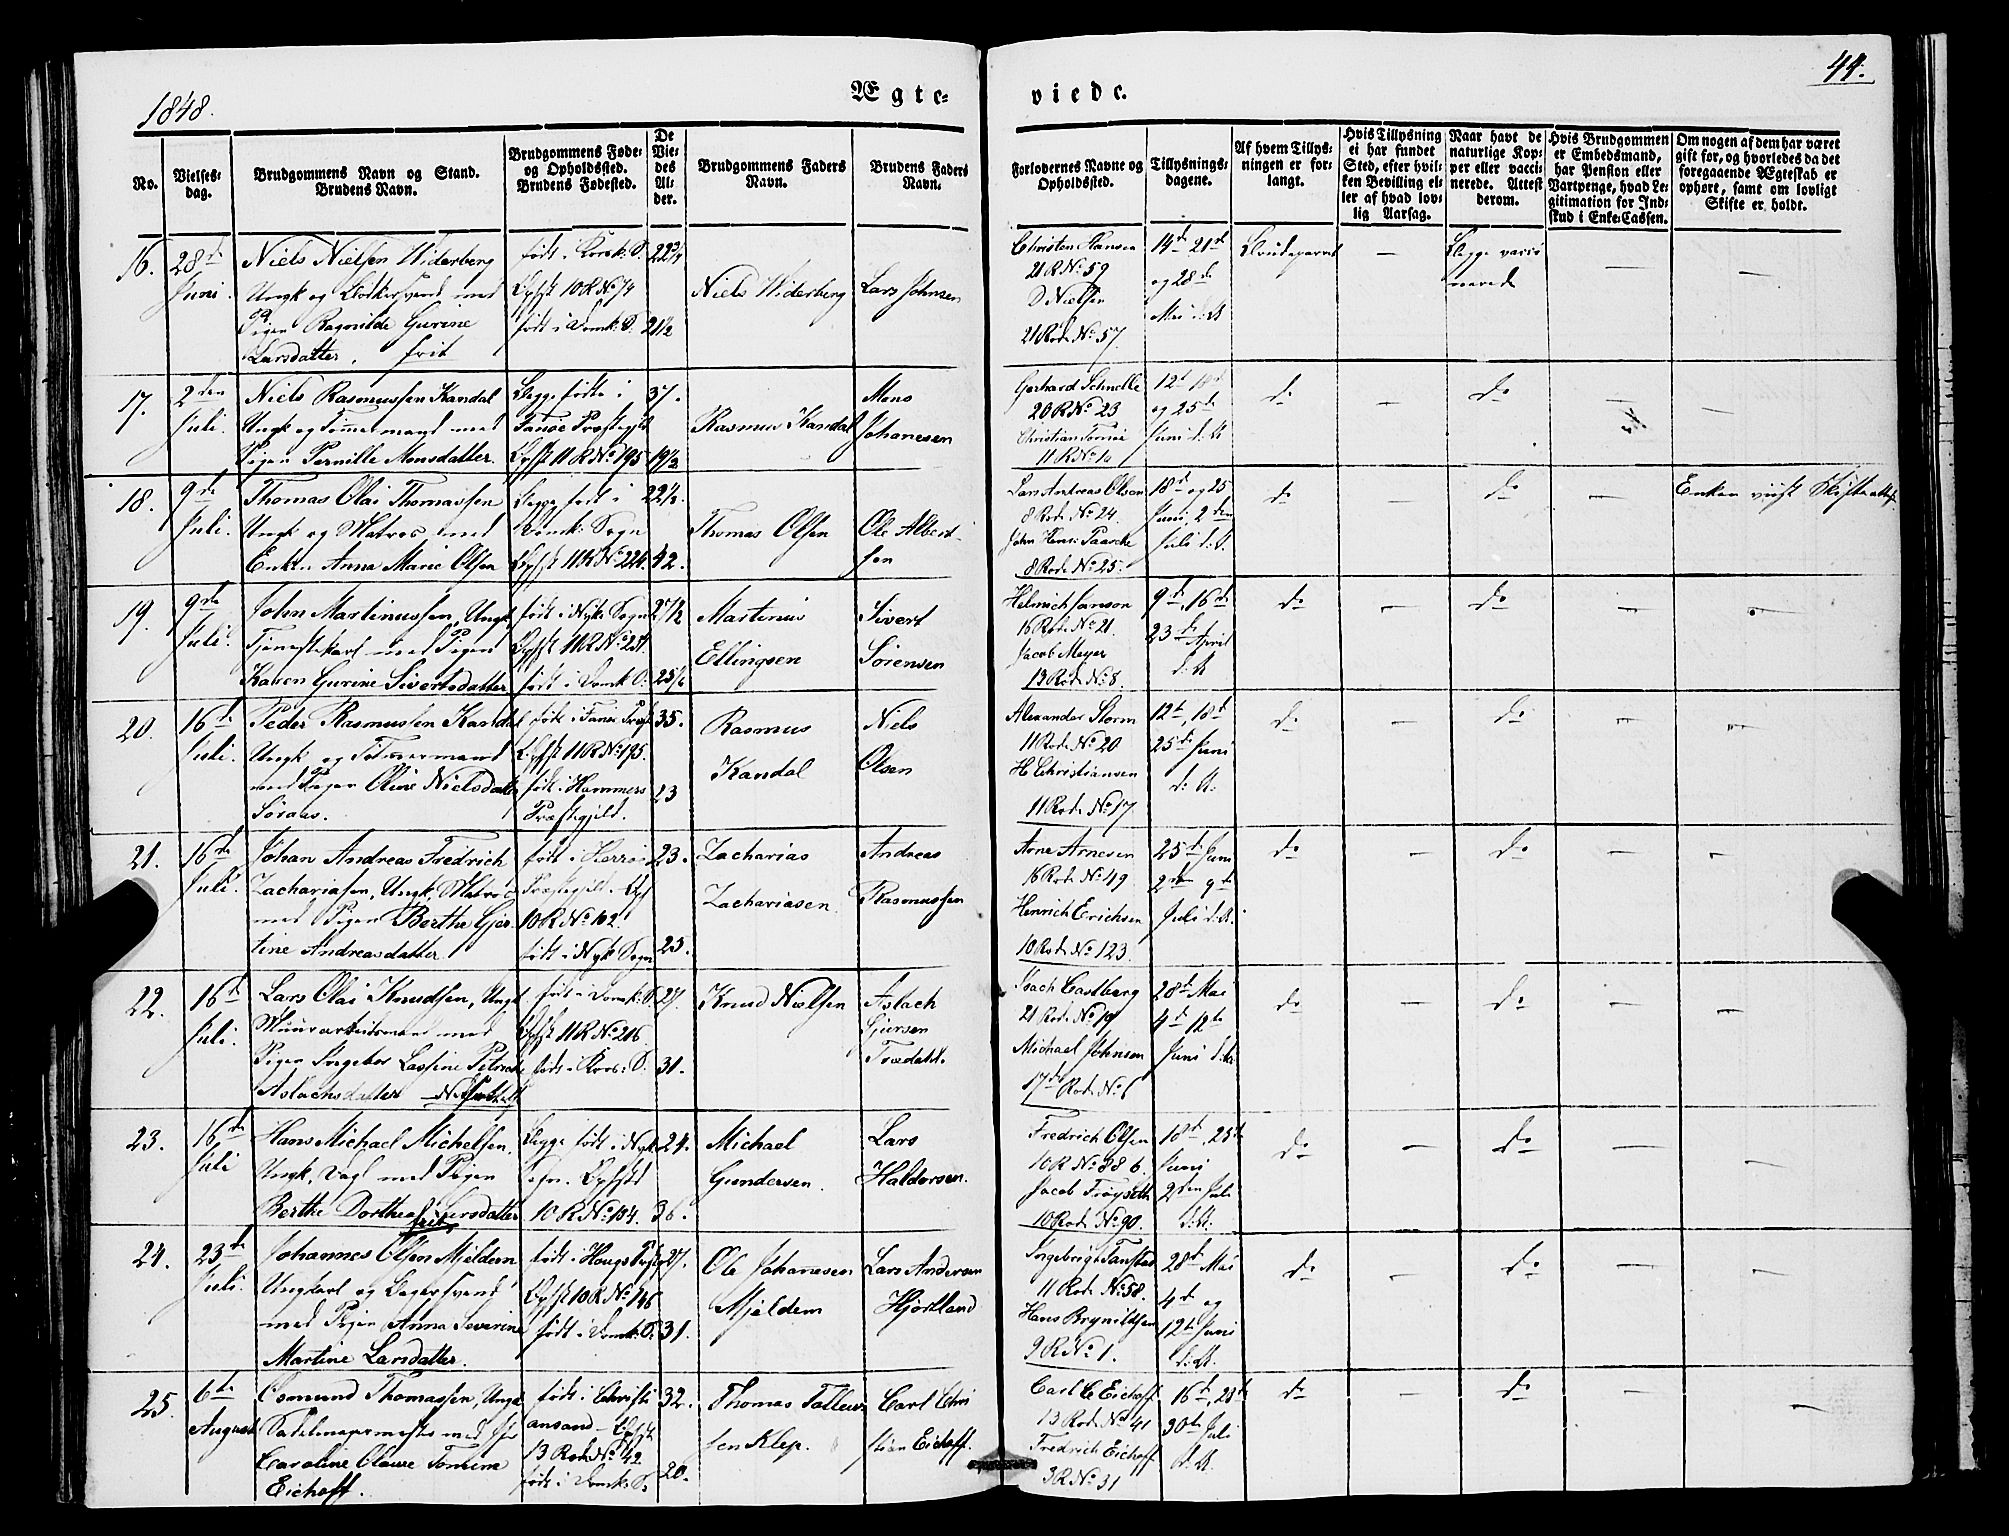 1848.
Ægte-
viede.
44.
No.
Vielses-
dag.
Brudgommens Navn og Stand.
Brudens Navn.
Brudgommens Føde-
og Opholdssted.
Brudens Fødested.
De
Vie-
des
Al-
der.
Brudgommens Faders
Navn.
Brudens Faders
Navn.
Forlovernes Navne og
Opholdssted.
Tillysnings-
dagene.
Af hvem Tillys-
ningen er for-
langt.
Hvis Tillysning
ei har fundet
Sted, efter hvil-
ken Bevilling el-
ler af hvad lov-
lig Aarsag.
Naar havt de
naturlige Kop-
per eller vacci-
nerede. Attest
derom.
Hvis Brudgommen
er Embedsmand,
har Pension eller
Vartpenge, hvad Le-
gitimation for Ind-
skud i Enke-Cassen.
Om nogen af dem har været
gift før, og hvorledes da det
foregaaende Ægteskab er
ophørt, samt om lovligt
Skifte er holdt.
16.
28de
Juni.
Niels Nielsen Widerberg
Ungk og Bødkersvend med
Pigen Ragnilde Gurine
Larsdatter. frit
født i Korsk: S.
Opst 10 R No 74
født i Domk: S.
22 3/4
21 1/2
Niels Widerberg
Lars Johnsen
Christen Hansen
21 R No 59
Nielsen
21 Rode No 57.
14de 21de
og 28de
Mai d: A
Brudeparret
—
Begge vacci
nerede
—
—
17.
2den
Juli.
Niels Rasmussen Kandal
Ungk og Tømmermand med
Pigen Pernille Monsdatter.
Begge fødte i
Fanøe Præstegjld
Opst 11 R No 195
37.
19 1/2
Rasmus Kandal
Mons
Johanesen
Gerhard Schnelle
20 R No 23
Christian
11 R No 10
12te 18de
og 25de
Juni d: A
do
—
do
—
—
18.
9de
Juli.
Thomas Olai Thomassen
Ungk og Matros med
Enken Anna Marie Olsen
Begge født i
Domk: Sogn
Opst 11 R No 224.
22 1/2.
42.
Thomas Olsen
Ole Albert-
sen
Lars Andreas Olsen
8 Rode No 24.
John Henri Paasche
8 Rode No 25.
18de og 25
Juni, 2den
Juli d: A.
do
do
—
Enken viist Skifteattest
19.
9de
Juli.
John Martinussen, Ungk,
Tjenestekarl med Pigen
Karen Gurine Sivertsdatter
født i Nyk: Sogn
Opst 11 R No 254
født i Domk S.
27 1/2
25 1/2
Martinus
Ellingsen
Sivert
Sørensen
Helmich Janson
16 Rode No 21.
Jacob Meyer
13 Rode No 8.
9de, 16de
23de April
d: A
do
—
do
—
—
20.
16de
Juli.
Peder Rasmussen Kandal
Ungk og Tømmermand
med Pigen Oline Nielsdatter
Søraas.
født i Fanøe Præst
Opst 11 R No 195.
født i Hammers
Præstegjeld.
35.
23
Rasmus
Kandal
Niels
Olsen
Alexander Storm
11 Rode No 20
H Christiansen
11 Rode No 17
12te, 18de
25de Juni
d: A.
do
—
do
—
—
21.
16de
Juli.
Johan Andreas Fredrich
Zachariasen, Ungk, Matros
med Pigen Berthe Gjer-
tine Andreasdatter
født i Herrøe
Præstegjeld. Opst
10 R No 102.
født i Nyk Sogn
23.
25.
Zacharias
Zachariasen.
Andreas
Rasmussen
Arne Arnesen
16 Rode No 49
Henrich Erichsen
10 Rode No 123
25de Juni
2den 9de
Juli d: A.
do
—
do
—
—
22.
16de
Juli.
Lars Olai Knudsen, Ungk
Muurarbeidsmand med
Pigen Ingebor Lassine Petrea
Aslachsdatter
født i Domk: S.
Opst 11 R No 216
født i Kors: S.
27.
31.
Knud Nielsen
Aslach
Gjersen
Trædahl.
Isach Castberg
21 Rode No 19
Michael Johnsen
17de Rode No 6
28de Mai
4de 12te
Juni d: A.
do
—
do
—
—
23.
16de
Juli
Hans Michael Michelsen,
Ungk, Dagl med Pigen
Berthe Dorthea Larsdatter
frit
Begge født i Nyk
Sogn. Opst
10 R No 104.
24.
36.
Michael
Gundersen.
Lars
Haldorsen.
Fredrich Olsen
10 R No 88 b.
Jacob Frøyseth
10 Rode No 90.
18de, 25de
Juni
2den Juli
d: A:
do
—
do
—
—
24.
23de
Juli.
Johannes Olsen Mjeldem
Ungkarl og Bagersvend
med Pigen Anna Severine
Martine Larsdatter.
født i Hougs Præstg
Opst 10 R No 146
født i Domk: S.
27.
31.
Ole Johannesen
Mjeldem
Lars Andersen
Hjortland
Ingebrigt
11 Rode No 58.
Hans Brynildsen
9 R No 1.
28de Mai
4de og
12te Juni
d: A.
do
—
do
—
—
25.
6te
August
Osmund Thomassen, Ungk
Sadelmagermester med
Caroline Olave
Eichoff.
født i Christi
ansand – Opst
13 Rode No 42
født i Domk: S.
32.
26.
Thomas Tallew
sen Klep.
Carl Chri
stian Eichoff.
Carl C Eichoff
13 Rode No 41
Fredrich Eichoff
3 R No 31
16de, 23de
30te Juli
d: A.
do
—
do
—
—